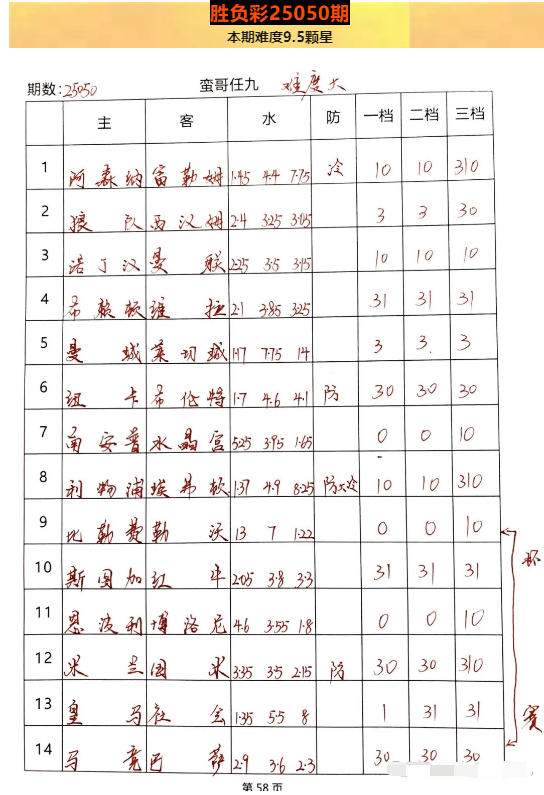 胜负彩25050期
本期难度9.5颗星
期数:25050 蛮哥任九 难度大
主 客 水 防 一档 二档 三档
1 阿森纳 富勒姆 1.45 4.4 7.75 冷 10 10 310
2 狼队 西汉姆 2.4 3.25 3.05 3 3 30
3 诺丁汉 曼联 2.25 3.5 3.15 10 10 10
4 布赖顿 维拉 2.1 3.85 3.25 31 31 31
5 曼城 莱切城 1.17 7.75 14 3 3 3
6 纽卡 布伦特 1.7 4.6 4.1 防 30 30 30
7 南安普 水晶宫 5.25 3.95 1.65 0 0 10
8 利物浦 埃弗顿 1.37 4.9 8.25 防大冷 10 10 310
9 比勒费 勒沃 13 7 1.22 0 0 10
10 斯图加 红牛 2.05 3.8 3.3 31 31 31
11 恩波利 博洛尼 4.6 3.55 1.8 0 0 10
12 米兰 国米 3.35 3.5 2.15 防 30 30 310
13 皇马 社会 1.35 5.5 8 1 31 31
14 马竞 巴萨 2.9 3.6 2.3 30 30 30
杯赛
第 58 页